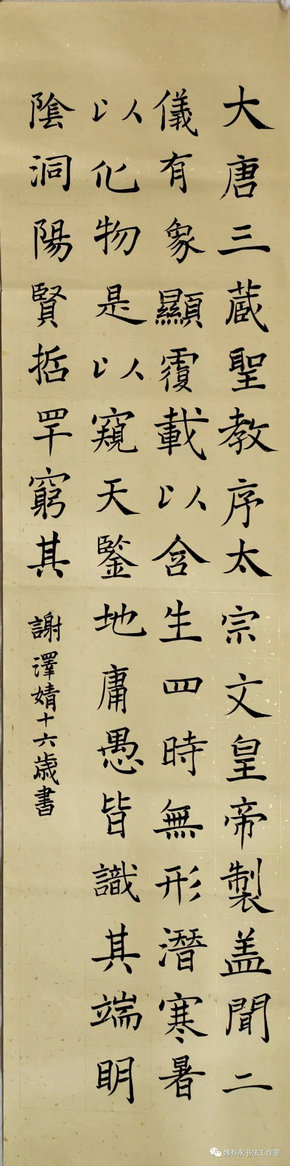 大唐三蔵聖教序太宗文皇帝製盖聞二
儀有象顯覆載以含生四時無形潛寒暑
以化物是以窺天鑒地庸愚皆識其端明
陰洞陽賢哲罕窮其
謝澤婧十六歲書
魏有永书法工作室